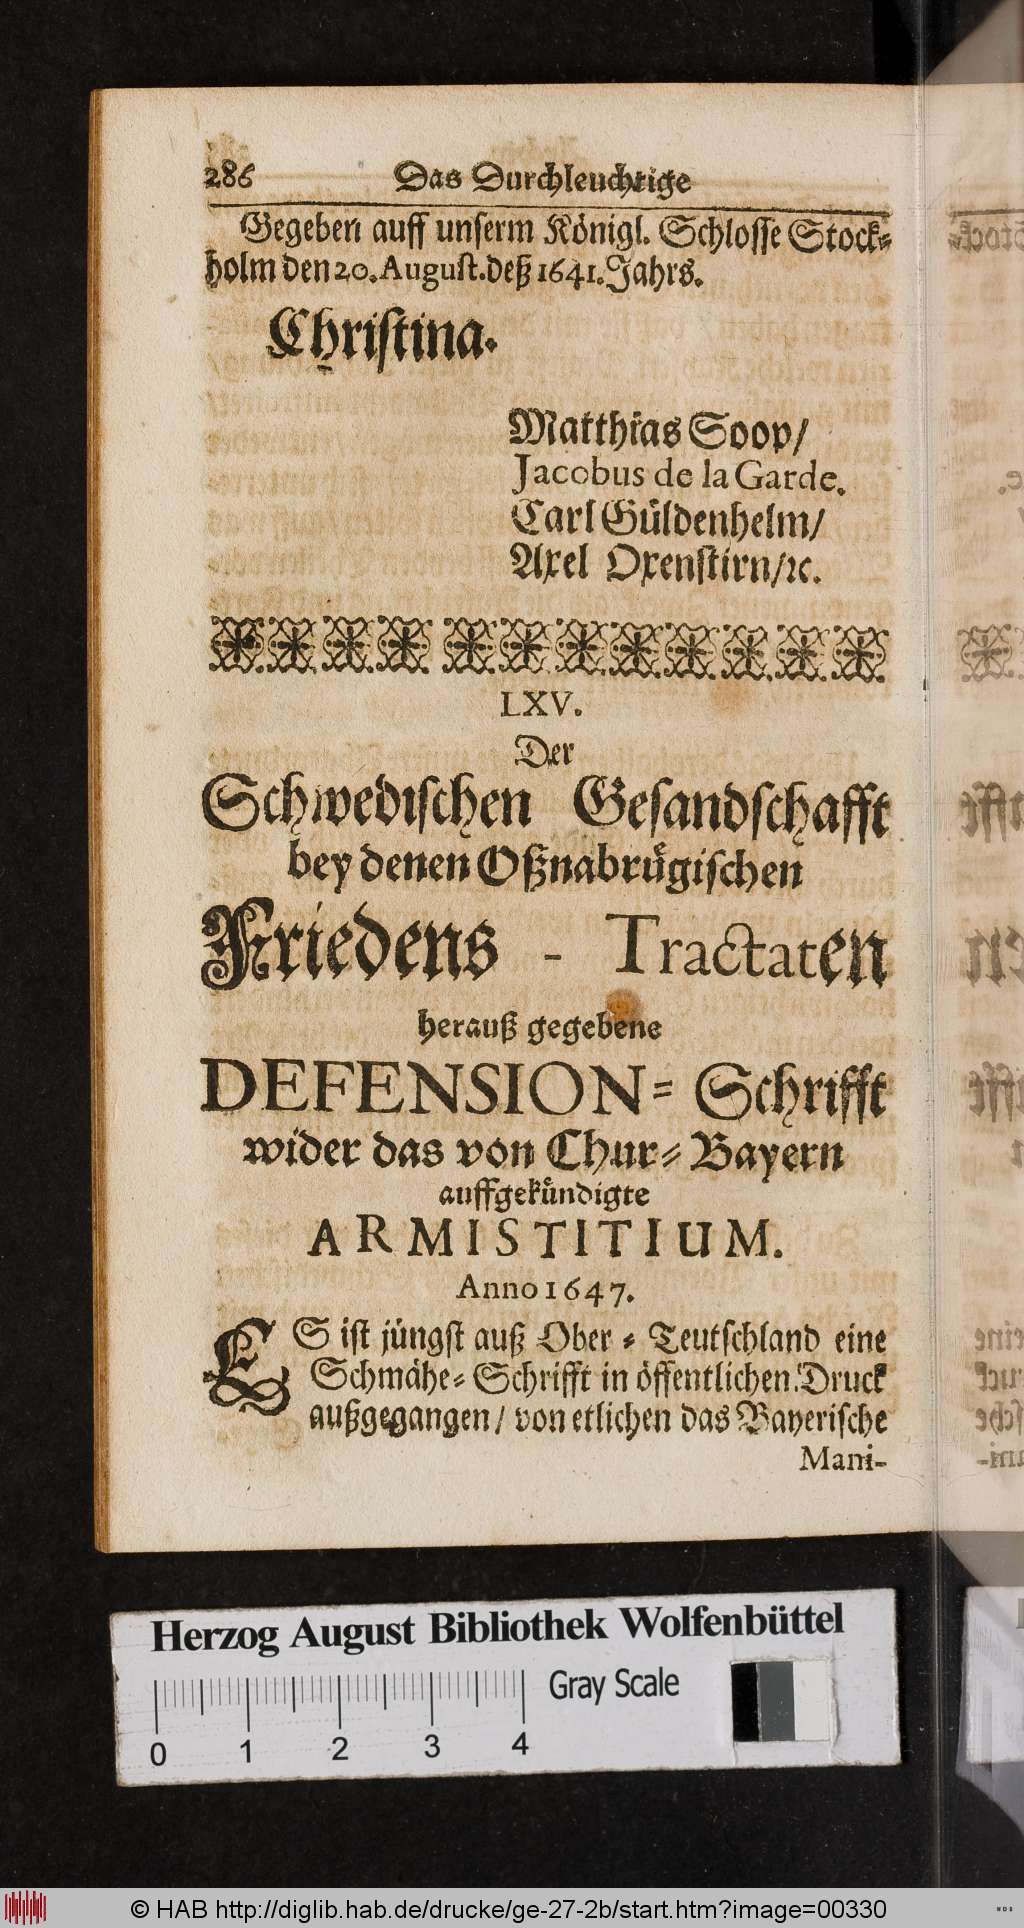 286 Das Durchleuchtige
Gegeben auff unserm Königl. Schlosse Stock-
holm den 20. August. deß 1641. Jahrs.
Christina.
Matthias Soop/
Jacobus de la Garde.
Carl Güldenhelm/
Axel Oxenstirn/ꝛc.
LXV.
Der
Schwedischen Gesandschafft
bey denen Oßnabrügischen
Friedens - Tractaten
herauß gegebene
DEFENSION= Schrifft
wider das von Chur- Bayern
auffgekündigte
ARMISTITIUM.
Anno 1647.
ES ist jüngst auß Ober - Teutschland eine
Schmähe- Schrifft in öffentlichen Druck
außgegangen/ von etlichen das Bayerische
Mani-
Herzog August Bibliothek Wolfenbüttel
Gray Scale
0 1 2 3 4
© HAB http://diglib.hab.de/drucke/ge-27-2b/start.htm?image=00330